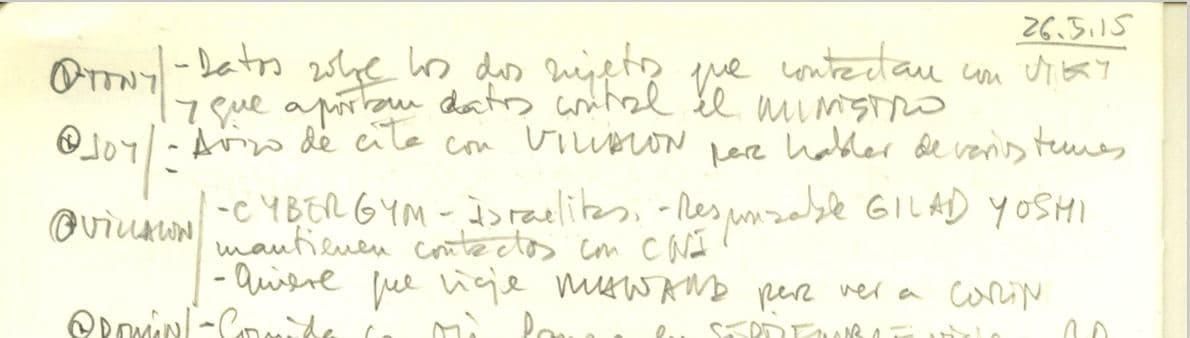 26.5.15
TONY/ - Datos sobre los dos sujetos que contactan con
y que aportan datos contra el MINISTRO
JOY/ - Aviso de cita con VILLALON para hablar de varios temas
VILLALON/ - CYBERGYM - israelitas. - Responsable GILAD YOSHI
mantienen contactos con CNI
- Quiere que viaje para ver a CORIN
- Comida